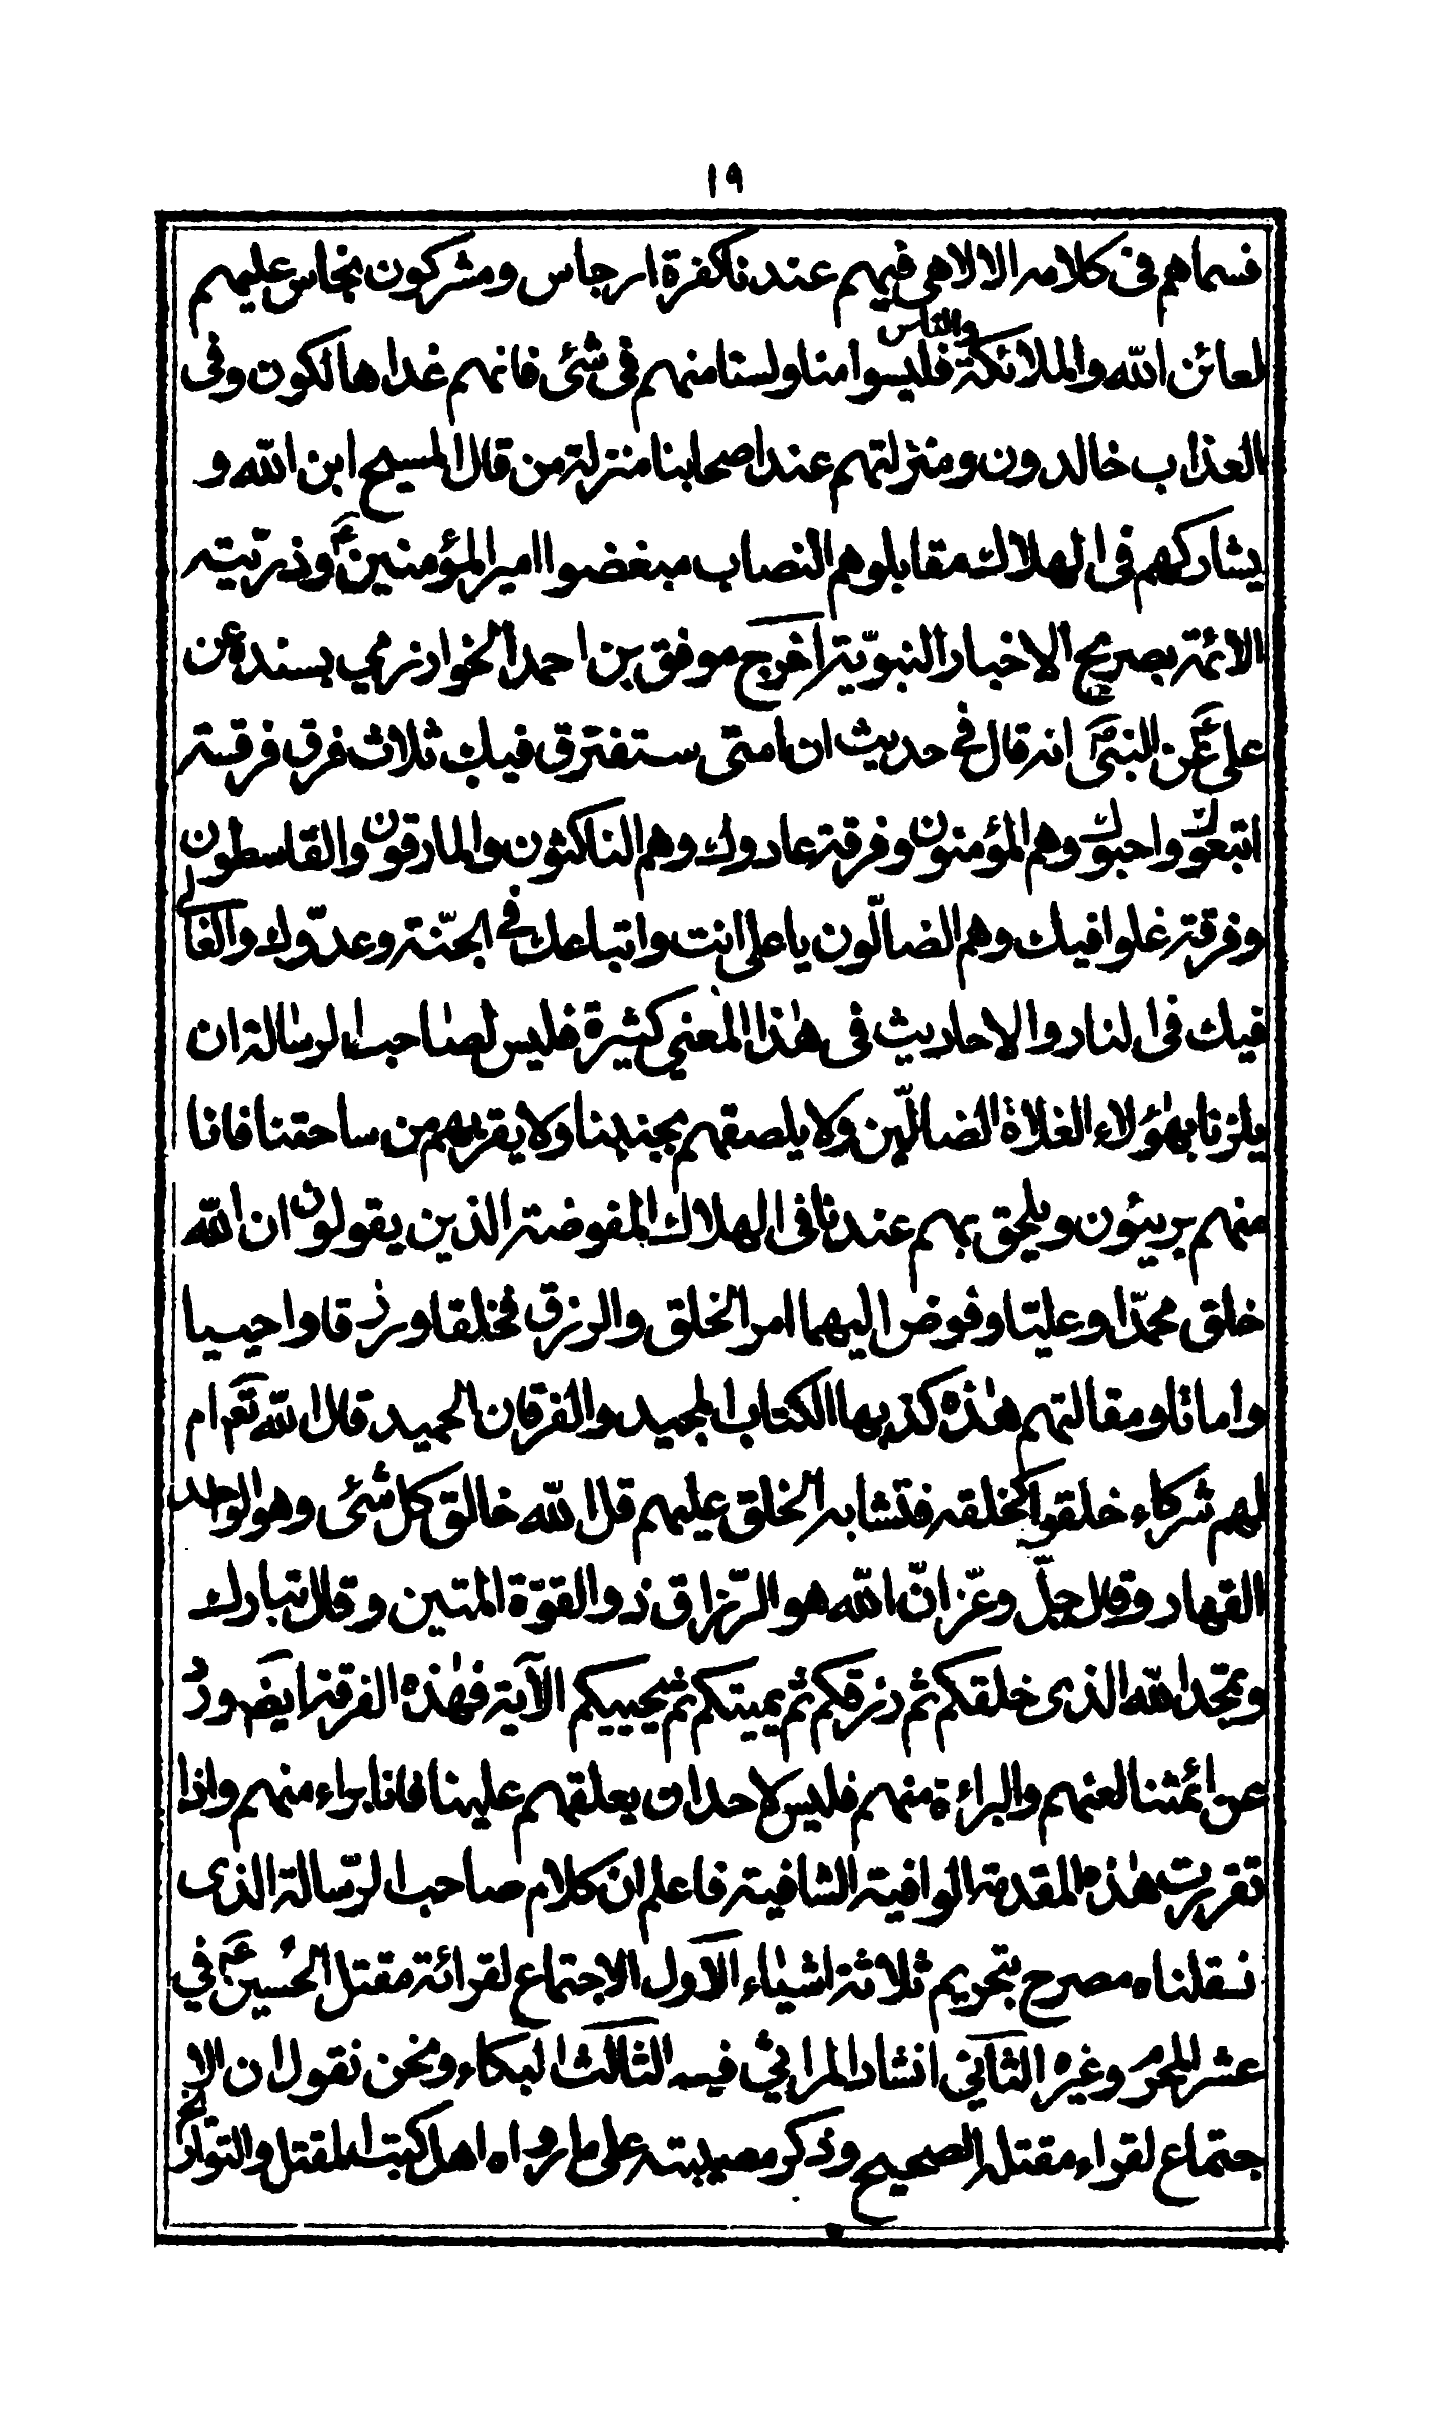 ١٩
فسماهم فى كلامه الالاهى فيهم عندنا كفرة ارجاس ومشركون نجاس عليهم
لعائن الله والملائكة والناس فليسوا منا ولسنا منهم فى شئى فانهم غدا هالكون وفى
العذاب خالدون ومنزلتهم عند اصحابنا منزلة من قال المسيح ابن الله و
يشاركهم فى الهلاك مقابلوهم النصاب مبغضوا امير المؤمنينؑ وذريته
الائمة بصريح الاخبار النبوّية اخرج موفق بن احمد الخوارزمي بسنده عن
علىؑ عن النبىؐ انه قال فى حديث ان امتى ستفترق فيك ثلاث فرق فرقة
اتبعوك واحبوك وهم المؤمنون وفرقة عادوك وهم الناكثون والمارقون والقاسطون
وفرقة غلوا فيك وهم الضالّون يا على انت واتباعك فى الجنّة وعدوّك والغالى
فيك فى النار والاحاديث فى هٰذا المعنى كثيرة فليس لصاحب الرسالة ان
يلزنا بهٰؤلاء الغلاة الضالّين ولا يلصقهم بجنبنا ولا يقربهم من ساحتنا فانا
منهم بريئون ويلحق بهم عندنا فى الهلاك المفوضة الذين يقولون ان الله
خلق محمّدا وعليّا وفوض اليهما امر الخلق والرزق فخلقا ورزقا واحييا
واماتا ومقالتهم هٰذه كذبها الكتاب المجيد والفرقان الحميد قال الله تعم ام
لهم شركاء خلقوا كخلقه فتشابه الخلق عليهم قل الله خالق كل شئى وهو الواحد
القهار وقال جلّ وعزّ انّ الله هو الرّزاق ذو القوّة المتين وقال تبارك
وتمجّد الله الذى خلقكم ثم رزقكم ثم يميتكم ثم يحييكم الآية فهٰذه الفرقة ايضَ ورد
عن ائمتنا لعنهم والبرائة منهم فليس لاحد ان يعلقهم علينا فانا براء منهم واذا
تقررت هٰذه المقدمة الوافية الشافية فاعلم ان كلام صاحب الرّسالة الذى
نقلناه مصرح بتحريم ثلاثة اشياء الاول الاجتماع لقرائة مقتل الحُسينؑ في
عشر المحرم وغيره الثاني انشاد المراثي فيه الثالث البكاء ونحن نقول ان الا
جتماع لقراء مقتله الصحيح وذكر مصيبته على ما رواه اهل كتب المقتل والتواريخ